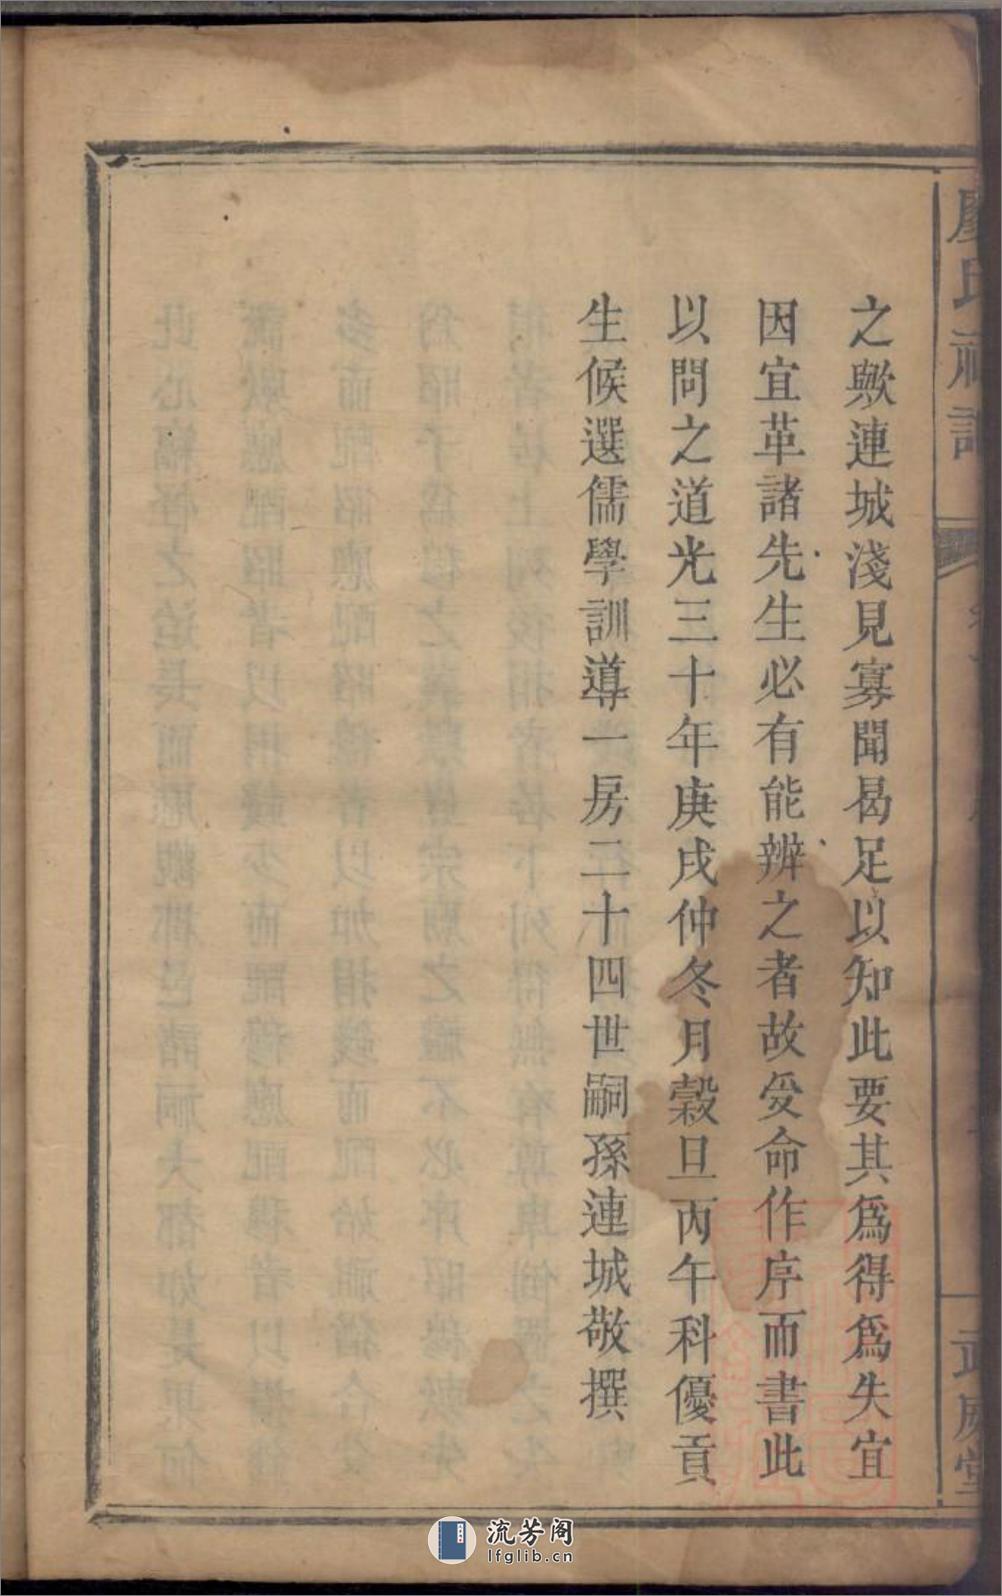 之歟連城淺見寡聞曷足以知此要其爲得爲失宜
因宜革諸先生必有能辨之者故受命作序而書此
以問之道光三十年庚戌仲冬月穀旦丙午科優貢
生候選儒學訓導一房二十四世嗣孫連城敬撰
廖氏祠譜
武威堂
流芳阁
lfglib.cn